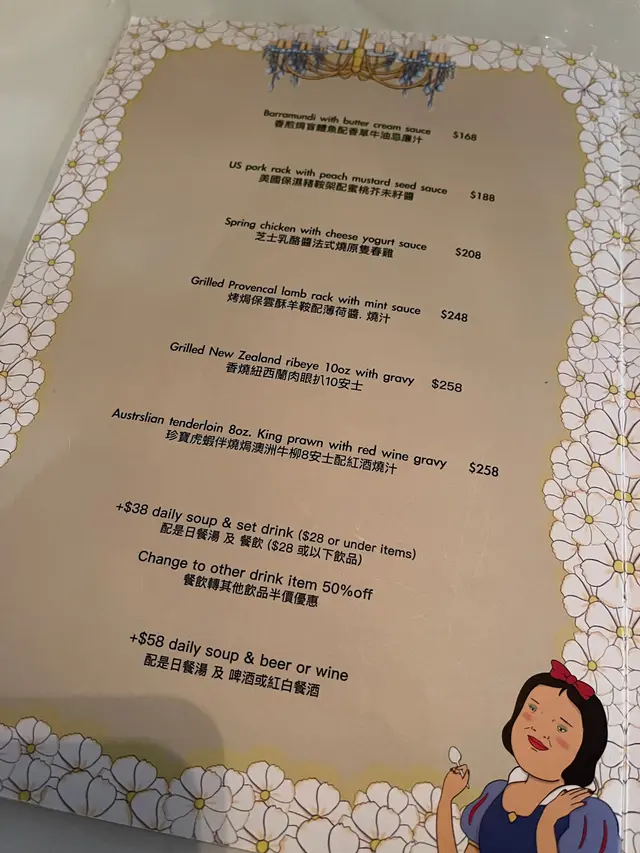 Barramundi with butter cream sauce $168
香煎焗盲鰽魚配香草牛油忌廉汁
US pork rack with peach mustard seed sauce $188
美國保濕豬鞍架配蜜桃芥末籽醬
Spring chicken with cheese yogurt sauce $208
芝士乳酪醬法式燒原隻春雞
Grilled Provencal lamb rack with mint sauce $248
烤焗保雲酥羊鞍配薄荷醬. 燒汁
Grilled New Zealand ribeye 10oz with gravy $258
香燒紐西蘭肉眼扒10安士
Austrslian tenderloin 8oz. King prawn with red wine gravy $258
珍寶虎蝦伴燒焗澳洲牛柳8安士配紅酒燒汁
+$38 daily soup & set drink ($28 or under items)
配是日餐湯 及 餐飲 ($28 或以下飲品)
Change to other drink item 50%off
餐飲轉其他飲品半價優惠
+$58 daily soup & beer or wine
配是日餐湯 及 啤酒或紅白餐酒